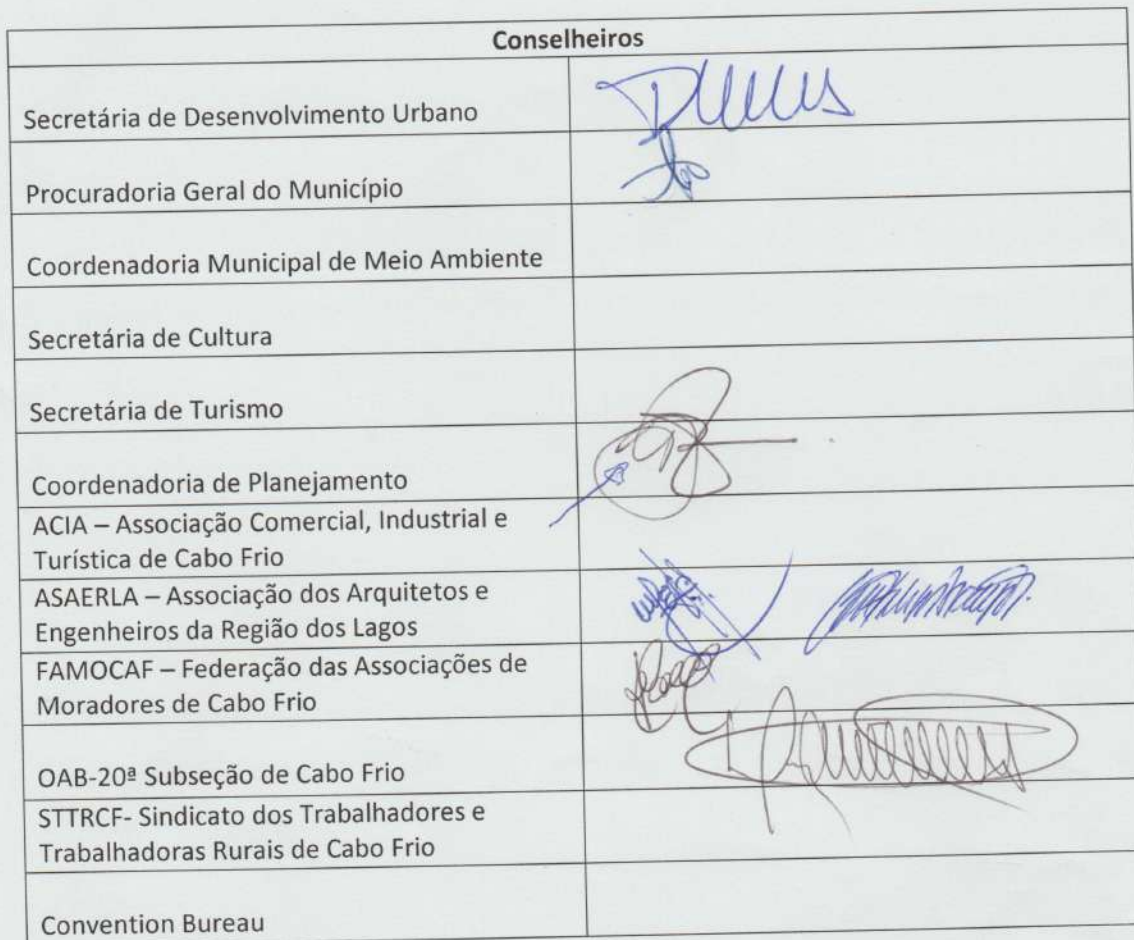 Conselheiros
Secretária de Desenvolvimento Urbano
Procuradoria Geral do Município
Coordenadoria Municipal de Meio Ambiente
Secretária de Cultura
Secretária de Turismo
Coordenadoria de Planejamento
ACIA – Associação Comercial, Industrial e
Turística de Cabo Frio
ASAERLA – Associação dos Arquitetos e
Engenheiros da Região dos Lagos
FAMOCAF – Federação das Associações de
Moradores de Cabo Frio
OAB-20ª Subseção de Cabo Frio
STTRCF- Sindicato dos Trabalhadores e
Trabalhadoras Rurais de Cabo Frio
Convention Bureau